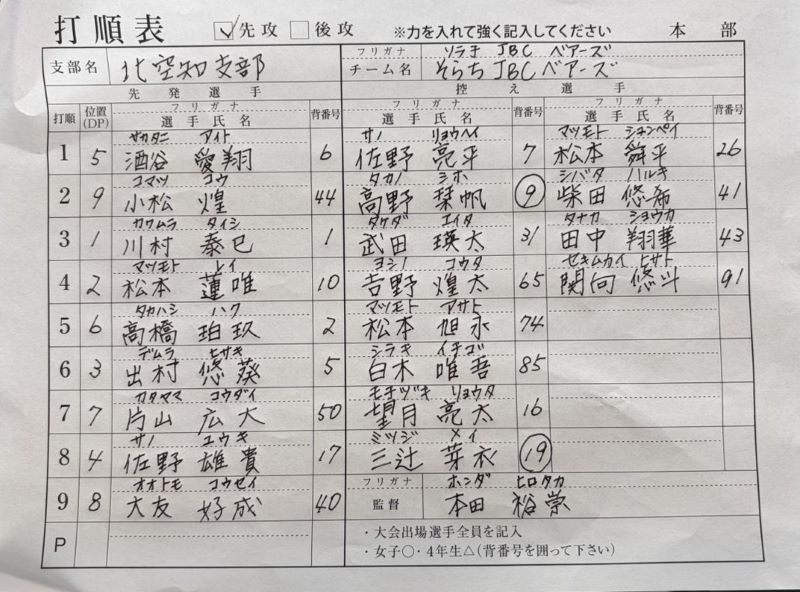 打順表 ☑先攻 □後攻 ※力を入れて強く記入してください 本部
支部名 北空知支部 フリガナ ソラチ JBC ベアーズ
チーム名 そらちJBCベアーズ
先発選手 控え選手
打順 位置(DP) フリガナ 選手氏名 背番号 フリガナ 選手氏名 背番号 フリガナ 選手氏名 背番号
サカタニ アイト サノ リョウヘイ マツモト シュンペイ
1 5 酒谷 愛翔 6 佐野 亮平 7 松本 舜平 26
コマツ コウ タカノ シホ シバタ ハルキ
2 9 小松 煌 44 高野 栞帆 9 柴田 悠希 41
カワムラ タイシ タケダ エイタ タナカ ショウカ
3 1 川村 泰巳 1 武田 瑛太 31 田中 翔華 43
マツモト レイ ヨシノ コウタ セキムカイ ヒサト
4 2 松本 蓮唯 10 吉野 煌太 65 関向 悠斗 91
タカハシ ハク マツモト アサト
5 6 高橋 珀玖 2 松本 旭永 74
デムラ ヒサキ シラキ イチゴ
6 3 出村 悠葵 5 白木 唯吾 85
カタヤマ コウダイ モチヅキ リョウタ
7 7 片山 広大 50 望月 亮太 16
サノ ユウキ ミツジ メイ
8 4 佐野 雄貴 17 三辻 芽衣 19
オオトモ コウセイ フリガナ ホンダ ヒロタカ
9 8 大友 好成 40 監督 本田 裕崇
P
・大会出場選手全員を記入
・女子○・4年生△(背番号を囲って下さい)